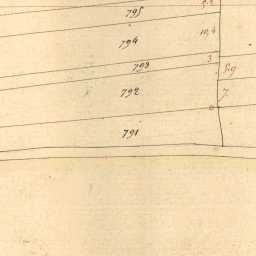 795
794
10,4
3
793
5.9
792
7
791